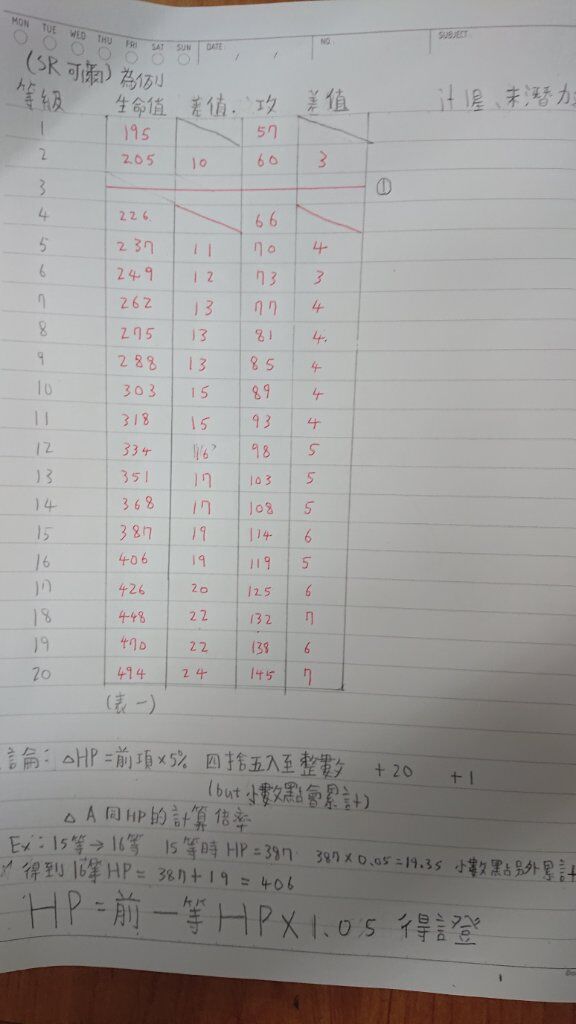 MON TUE WED THU FRI SAT SUN DATE / / NO. SUBJECT
(SR可爾)為例
等級 生命值 差值. 攻 差值 計算、未潛力
1 195 57
2 205 10 60 3
3 ①
4 226. 66
5 237 11 70 4
6 249 12 73 3
7 262 13 77 4
8 275 13 81 4.
9 288 13 85 4
10 303 15 89 4
11 318 15 93 4
12 334 16? 98 5
13 351 17 103 5
14 368 17 108 5
15 387 19 114 6
16 406 19 119 5
17 426 20 125 6
18 448 22 132 7
19 470 22 138 6
20 494 24 145 7
(表一)
論: △HP=前項×5% 四捨五入至整數 +20 +1
(but 小數點會累計)
△A同HP的計算倍率
Ex: 15等→16等 15等時HP=387 387×0.05=19.35 小數點另外累計
得到16等HP=387+19=406
HP=前一等HP×1.05 得證